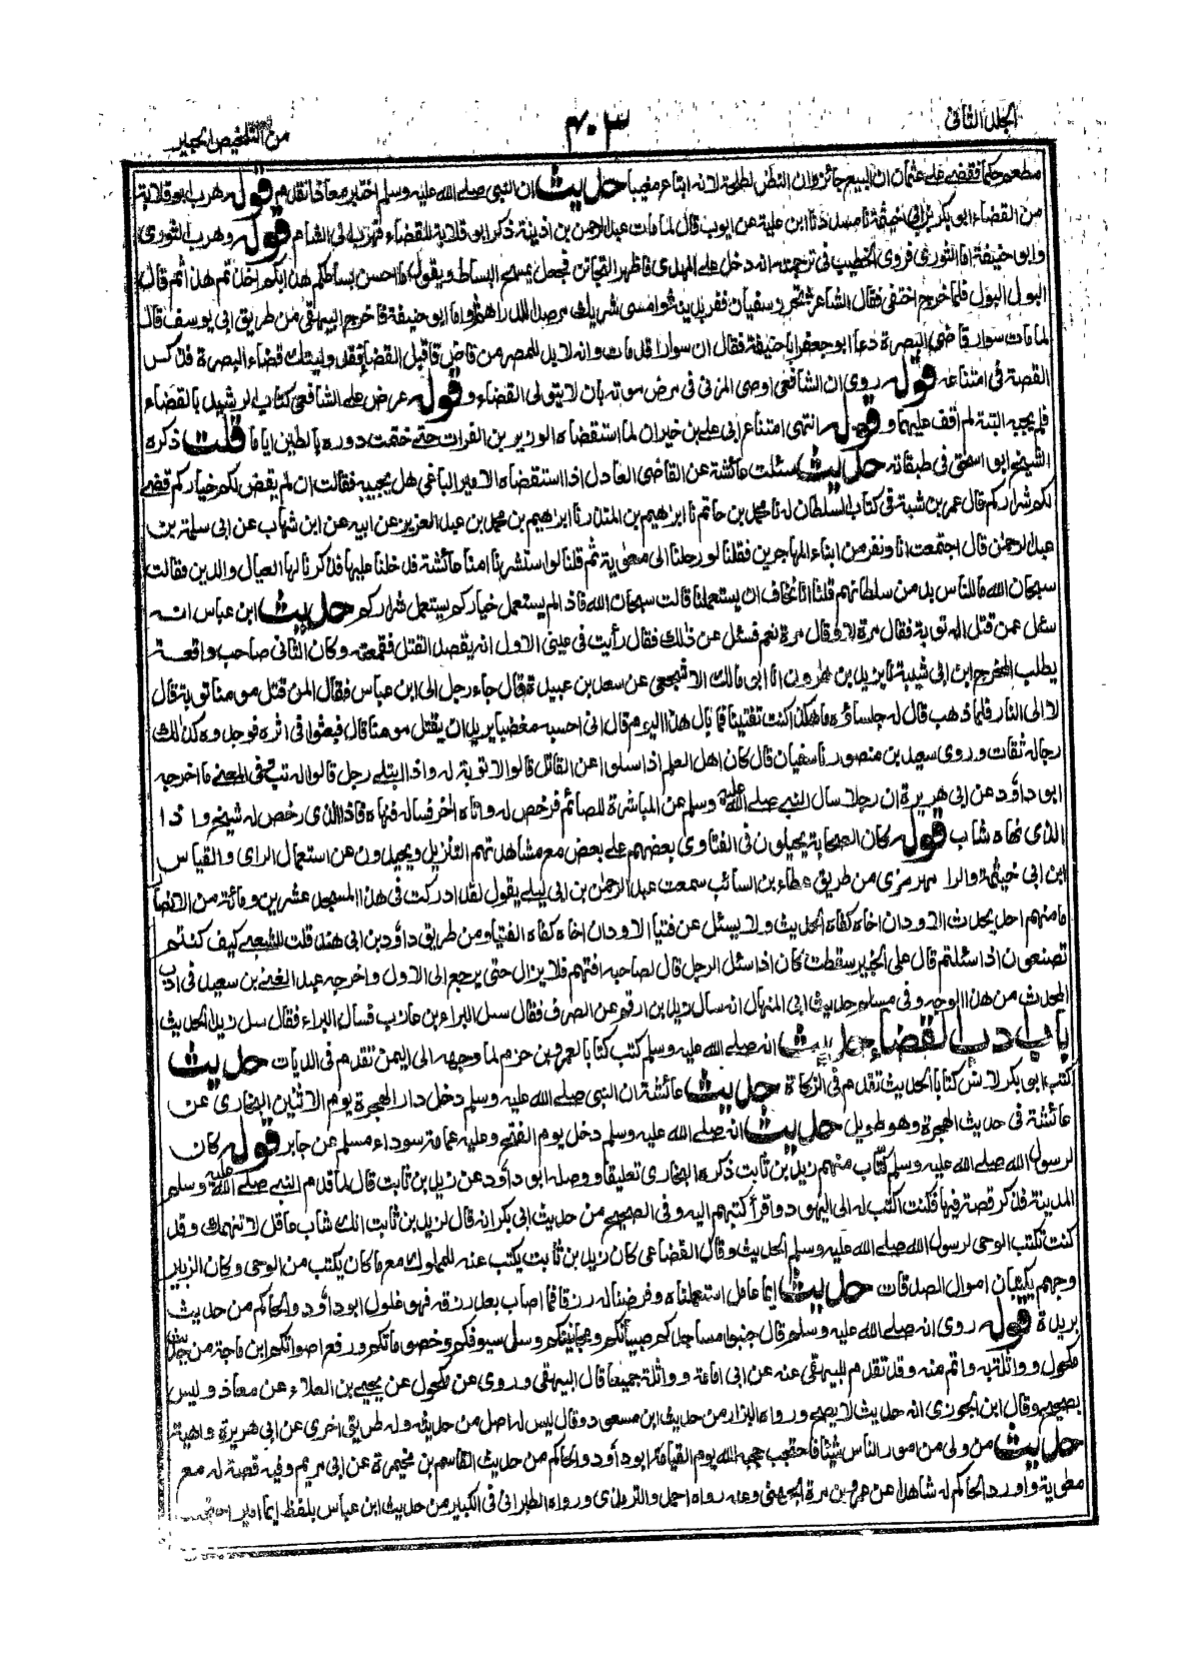 الجلد الثاني
٤٠٣
من التلخيص الحبير
مطعم حكما فقضى على عثمان ان البيع جائز وان النظر لطلحة لانه ابتاع مغيبا حديث ان النبي صلى الله عليه وسلم اختبر معاذا تقدم قوله وهرب ابو قلابة
من القضاء ابو بكر بن ابي خيثمة نا مسدد نا ابن علية عن ايوب قال لما مات عبد الرحمن بن اذينة ذكر ابو قلابة للقضاء فهرب الى الشام قوله وهرب الثوري
وابو حنيفة اما الثوري فروى الخطيب في ترجمته انه دخل على المهدي فاظهر التجانن فجعل يمسح البساط ويقول ما احسن بساطكم هذا بكم اخذتم هذا ثم قال
البول البول فلما خرج اختفى فقال الشاعر شعر تحرز سفيان ففر بدينه وامسى شريك مرصدا للدراهم واما ابو حنيفة فاخرج البيهقي من طريق ابي يوسف قال
لما مات سوار قاضي البصرة دعا ابو جعفر ابا حنيفة فقال ان سوارا قد مات وانه لا بد للمصر من قاض فاقبل القضاء فقد وليتك قضاء البصرة فذكر
القصة في امتناعه قوله روى ان الشافعي اوصى المزني في مرض موته بان لا يتولى القضاء وقوله عرض على الشافعي كتاب الرشيد بالقضاء
فلم يجبه البتة لم اقف عليهما وقوله انتهى امتناع ابي علي بن خيران لما استقضاه الوزير بن الفرات حتى ختمت دوره بالطين اياما قلت ذكره
الشيخ ابو اسحق في طبقاته حديث سئلت عائشة عن القاضي العادل اذا استقضاه الامير الباغي هل يجيبه فقالت ان لم يقض لكم خياركم قضى
لكم شراركم قال عمر بن شبة في كتاب السلطان له نا محمد بن حاتم نا ابرهيم بن المنذر نا ابرهيم بن محمد بن عبد العزيز عن ابيه عن ابن شهاب عن ابي سلمة بن
عبد الرحمن قال اجتمعت انا ونفر من ابناء المهاجرين فقلنا لو رحلنا الى معوية ثم قلنا لو استشرنا امنا عائشة فدخلنا عليها فذكرنا لها العيال والدين فقالت
سبحان الله ما للناس بد من سلطانهم قلنا انا نخاف ان يستعملنا قالت سبحان الله فاذا لم يستعمل خياركم يستعمل شراركم حديث ابن عباس انه
سئل عمن قتل اله توبة فقال مرة لا وقال مرة نعم فسئل عن ذلك فقال رأيت في عيني الاول انه يقصد القتل فقمعته وكان الثاني صاحب واقعة
يطلب المخرج ابن ابي شيبة نا يزيد بن هرون انا ابي مالك الاشجعي عن سعد بن عبيدة قال جاء رجل الى ابن عباس فقال المن قتل مومنا توبة قال
لا الى النار فلما ذهب قال له جلساؤه ما هكذا كنت تفتينا فما بال هذا اليوم قال اني احسبه مغضبا يريد ان يقتل مومنا قال فبعثوا في اثره فوجدوه كذلك
رجاله ثقات وروى سعيد بن منصور نا سفيان قال كان اهل العلم اذا سئلوا عن القاتل قالوا لا توبة له واذا ابتلى رجل قالوا له تب وفي المعنى ما اخرجه
ابو داود عن ابي هريرة ان رجلا سال النبي صلى الله عليه وسلم عن المباشرة للصائم فرخص له واتاه اخر فساله فنهاه فاذا الذي رخص له شيخ واذا
الذي نهاه شاب قوله كان الصحابة يحيلون في الفتاوى بعضهم على بعض مع مشاهدتهم التنزيل ويحيدون عن استعمال الراي والقياس
ابن ابي خيثمة والرامهرمزي من طريق عطاء بن السائب سمعت عبد الرحمن بن ابي ليلى يقول لقد ادركت في هذا المسجد عشرين ومائة من الانصار
ما منهم احد يحدث الا ود ان اخاه كفاه الحديث ولا يسئل عن فتيا الا ود ان اخاه كفاه الفتيا ومن طريق داود بن ابي هند قلت للشعبي كيف كنتم
تصنعون اذا سئلتم قال على الخبير سقطت كان اذا سئل الرجل قال لصاحبه افتهم فلا يزال حتى يرجع الى الاول واخرجه عبد الغني بن سعيد في ادب
المحدث من هذا الوجه وفي مسلم حديث ابي المنهال انه سال زيد بن ارقم عن الصرف فقال سل البراء بن عازب فسال البراء فقال سل زيدا الحديث
باب ادب القضاء حديث انه صلى الله عليه وسلم كتب كتابا لعمرو بن حزم لما وجهه الى اليمن تقدم في الديات حديث
كتب ابو بكر لانس كتابا الحديث تقدم في الزكاة حديث عائشة ان النبي صلى الله عليه وسلم دخل دار الهجرة يوم الاثنين البخاري عن
عائشة في حديث الهجرة وهو طويل حديث انه صلى الله عليه وسلم دخل يوم الفتح وعليه عمامة سوداء مسلم عن جابر قوله كان
لرسول الله صلى الله عليه وسلم كتاب منهم زيد بن ثابت ذكره البخاري تعليقا ووصله ابو داود عن زيد بن ثابت قال لما قدم النبي صلى الله عليه وسلم
المدينة فذكر قصة فيها فكنت اكتب له الى اليهود واقرأ كتبهم اليه وفي الصحيح من حديث ابي بكر انه قال لزيد بن ثابت انك شاب عاقل لا نتهمك وقد
كنت تكتب الوحي لرسول الله صلى الله عليه وسلم الحديث وقال القضاعي كان زيد بن ثابت يكتب عنه للملوك مع ما كان يكتب من الوحي وكان الزبير
وجهم يكتبان اموال الصدقات حديث ايما عامل استعملناه وفرضنا له رزقا فما اصاب بعد رزقه فهو غلول ابو داود والحاكم من حديث
بريدة قوله روى انه صلى الله عليه وسلم قال جنبوا مساجدكم صبيانكم ومجانينكم وسل سيوفكم وخصوماتكم ورفع اصواتكم ابن ماجة من حديث
مكحول وواثلة به واتم منه وقد تقدم للبيهقي عنه عن ابي امامة وواثلة جميعا قال البيهقي وروى عن مكحول عن يحيى بن العلاء عن معاذ وليس
بصحيح وقال ابن الجوزي انه حديث لا يصح ورواه البزار من حديث ابن مسعود وقال ليس له اصل من حديثه وله طريق اخرى عن ابي هريرة واهية
حديث من ولى من امور الناس شيئا فاحتجب حجبه الله يوم القيامة ابو داود والحاكم من حديث القاسم بن مخيمرة عن ابي مريم وفيه قصة له مع
معوية واورد الحاكم له شاهدا عن عمرو بن مرة الجهني وعنه رواه احمد والترمذي ورواه الطبراني في الكبير من حديث ابن عباس بلفظ ايما امير احتجب